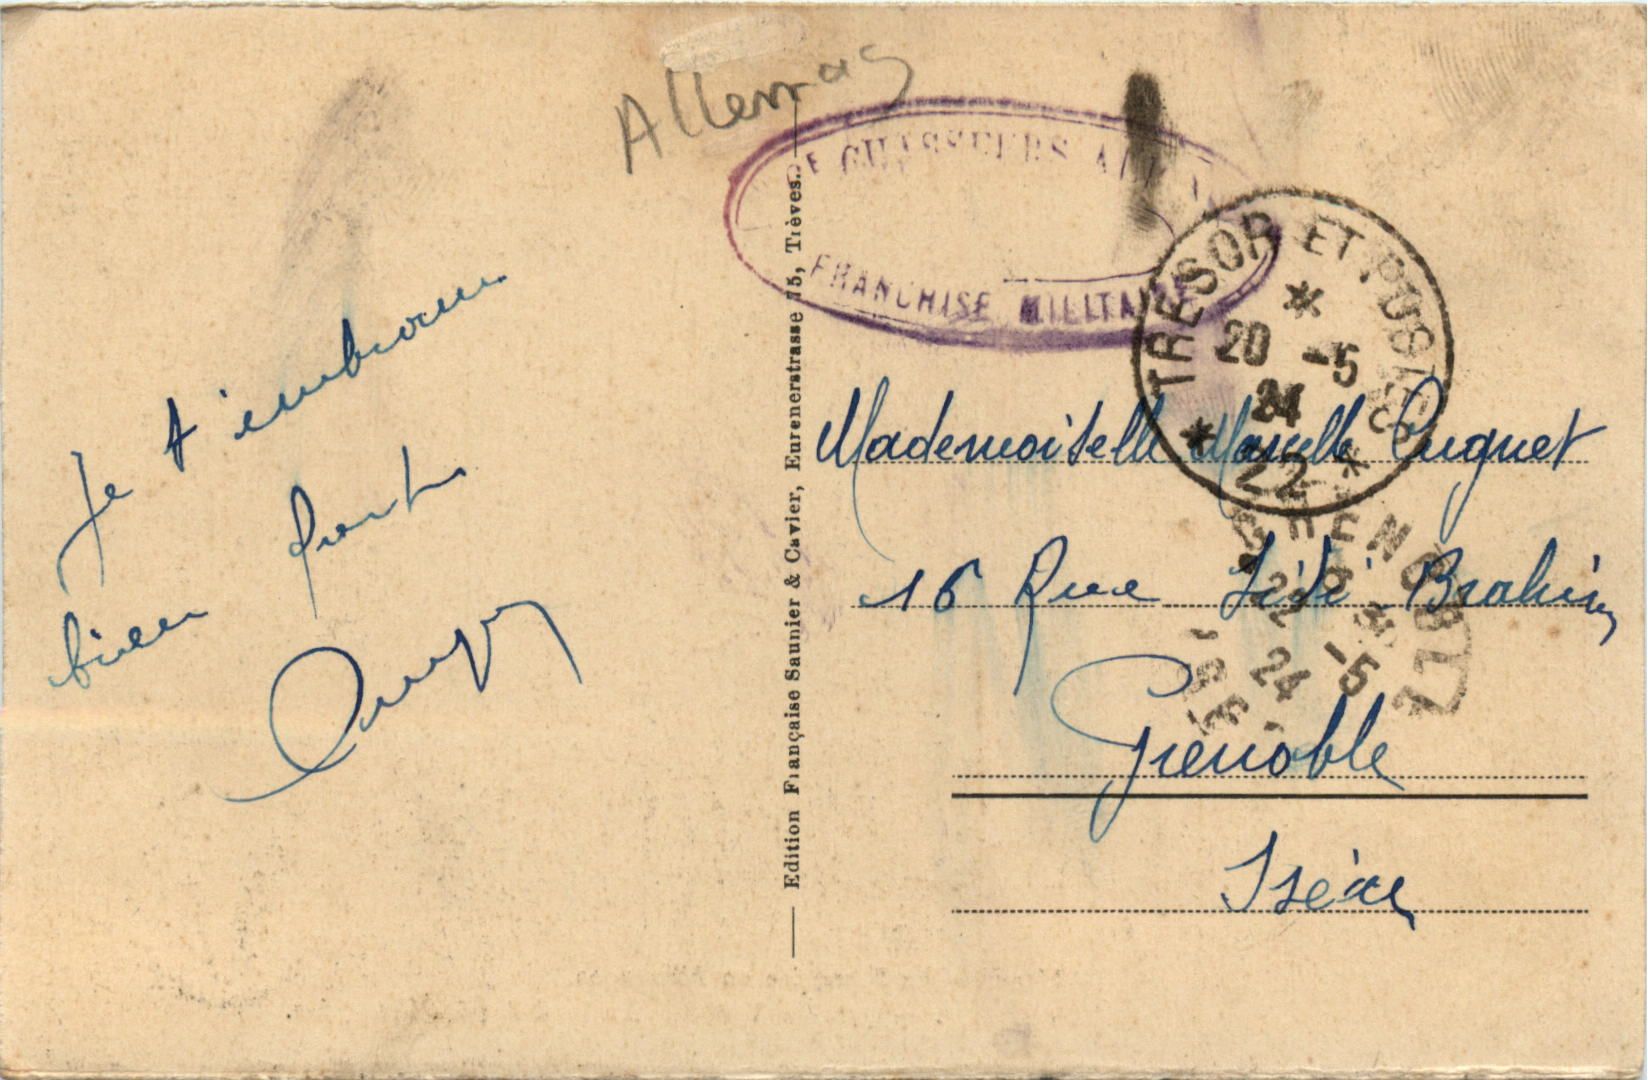 Allemag
DE CHASSEURS ALPINS
FRANCHISE MILITAIRE
TRESOR ET POSTES
* 20 -5 24 *
* 22 *
GRENOBLE
24 -5
Je t'embrasse
bien fort
Edition Française Saunier & Cavier, Eurenerstrasse 15, Trèves.
Mademoiselle Marcelle Cuguet
16 Rue Sidi Brahim
Grenoble
Isère